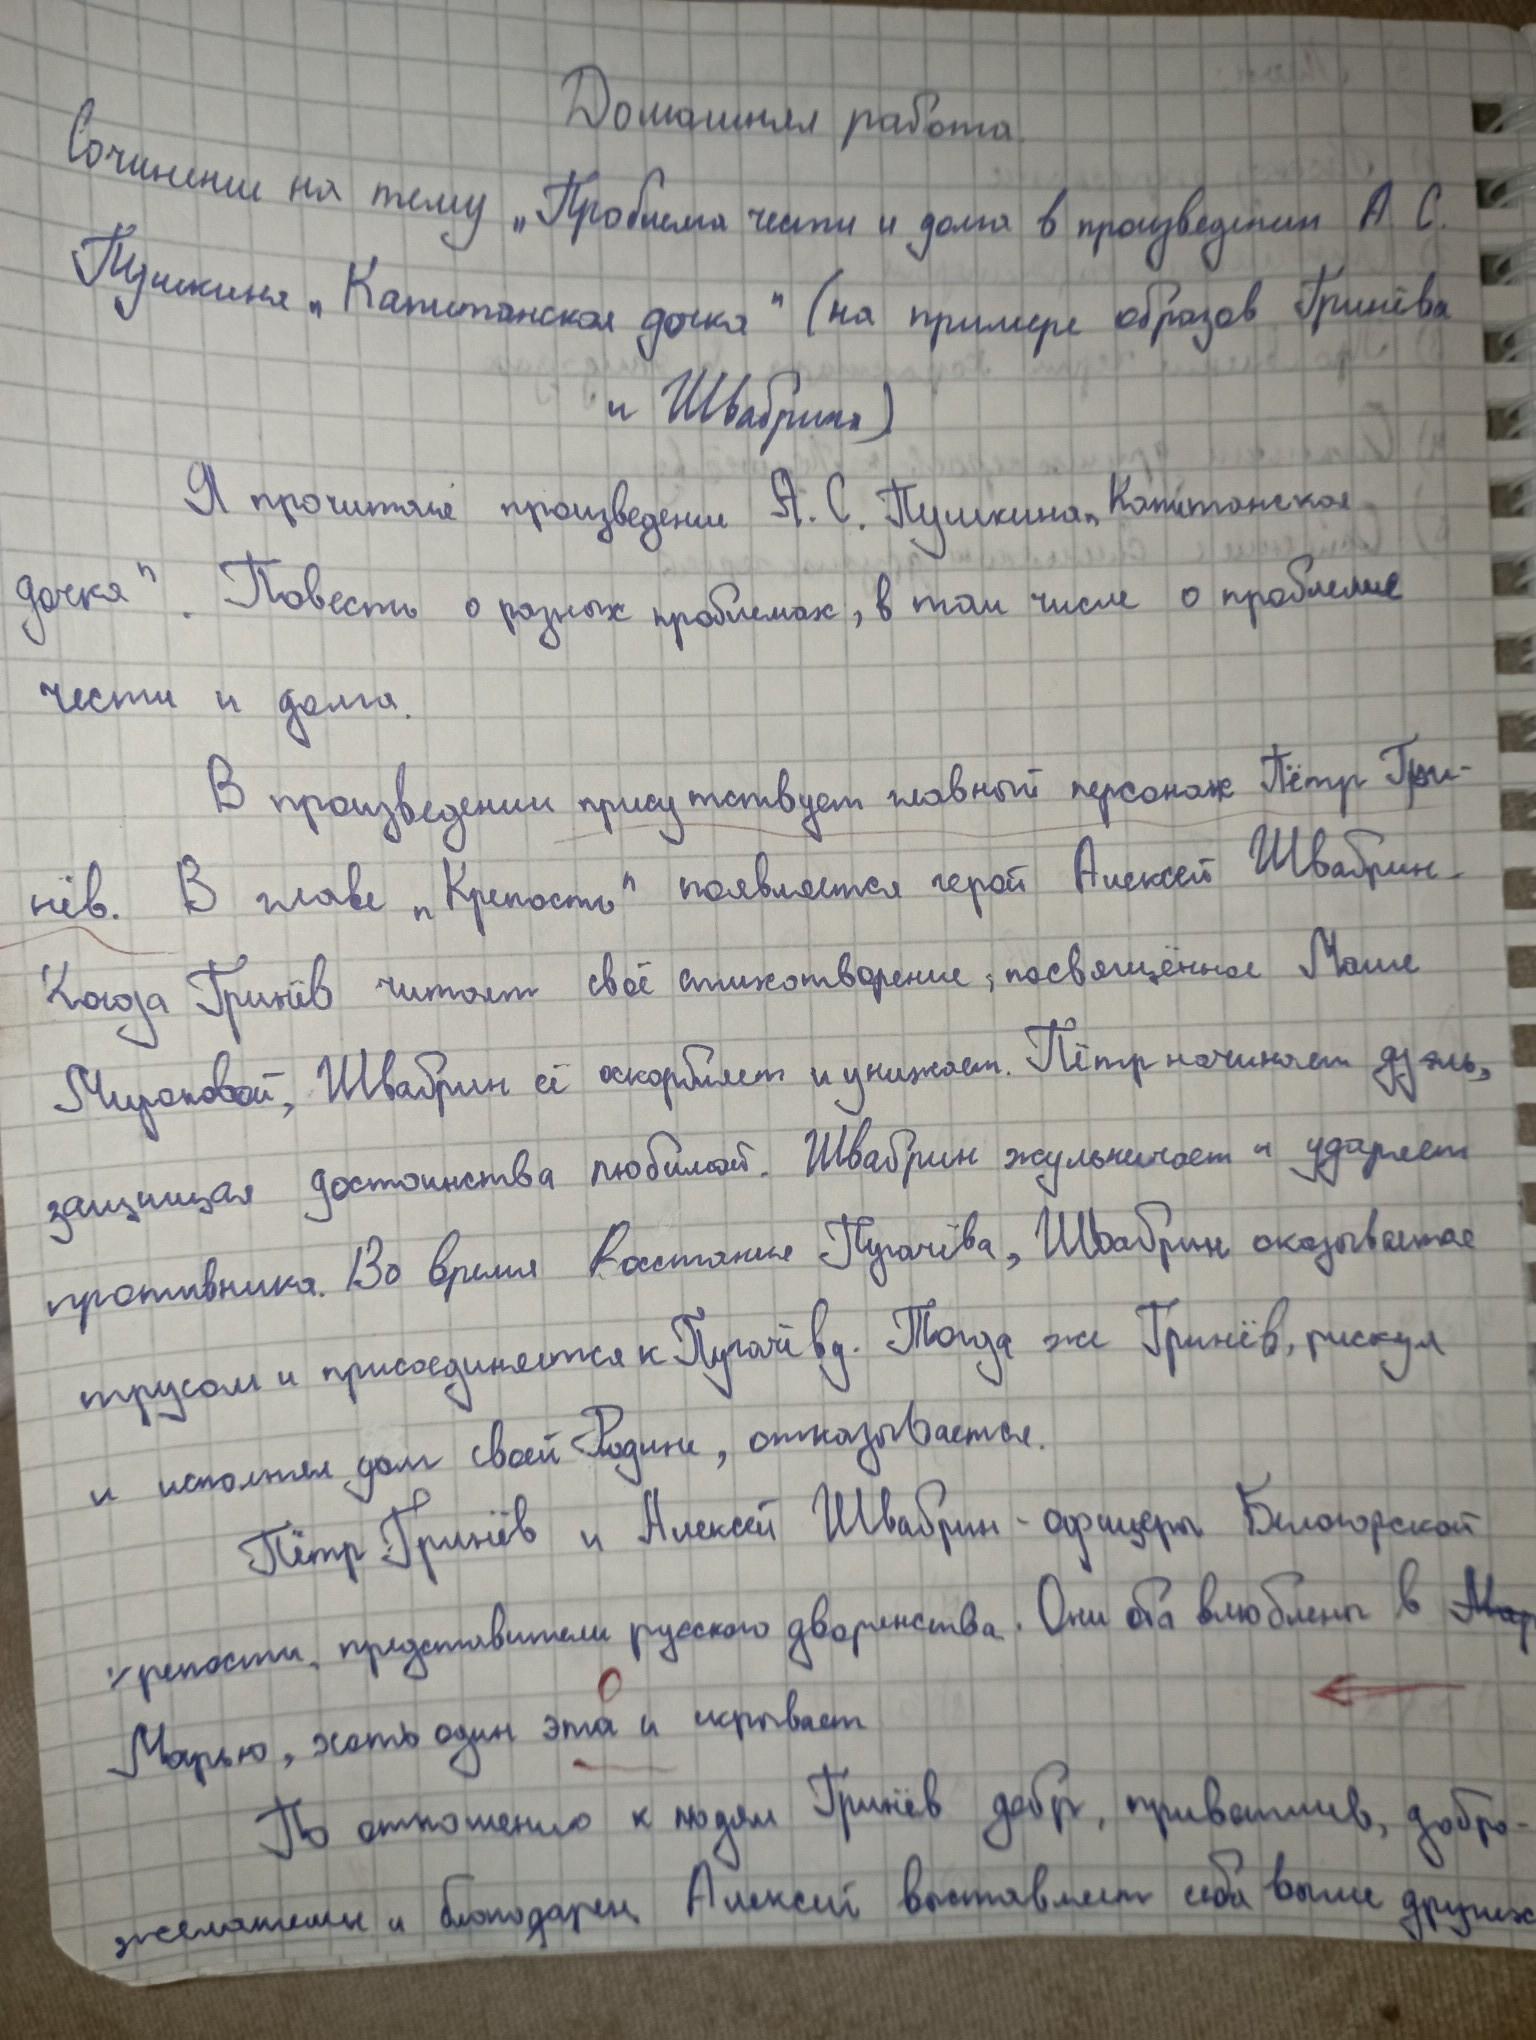 Домашняя работа.
Сочинение на тему „Проблема чести и долга в произведении А. С.
Пушкина „Капитанская дочка" (на примере образов Гринёва
и Швабрина)
Я прочитала произведение А. С. Пушкина „Капитанская
дочка". Повесть о разных проблемах, в том числе о проблеме
чести и долга.
В произведении присутствует главный персонаж Пётр Гри-
нёв. В главе „Крепость" появляется герой Алексей Швабрин.
Когда Гринёв читает своё стихотворение, посвящённое Маше
Мироновой, Швабрин её оскорбляет и унижает. Пётр начинает дуэль,
защищая достоинства любимой. Швабрин жульничает и ударяет
противника. Во время восстания Пугачёва, Швабрин оказывается
трусом и присоединяется к Пугачёву. Тогда же Гринёв, рискуя
и исполняя долг своей Родине, отказывается.
Пётр Гринёв и Алексей Швабрин - офицеры Белогорской
крепости, представители русского дворянства. Они оба влюблены в Мар
Марью, хоть один это и скрывает
По отношению к людям Гринёв добр, приветлив, добро-
желателен и благодарен. Алексей выставляет себя выше других